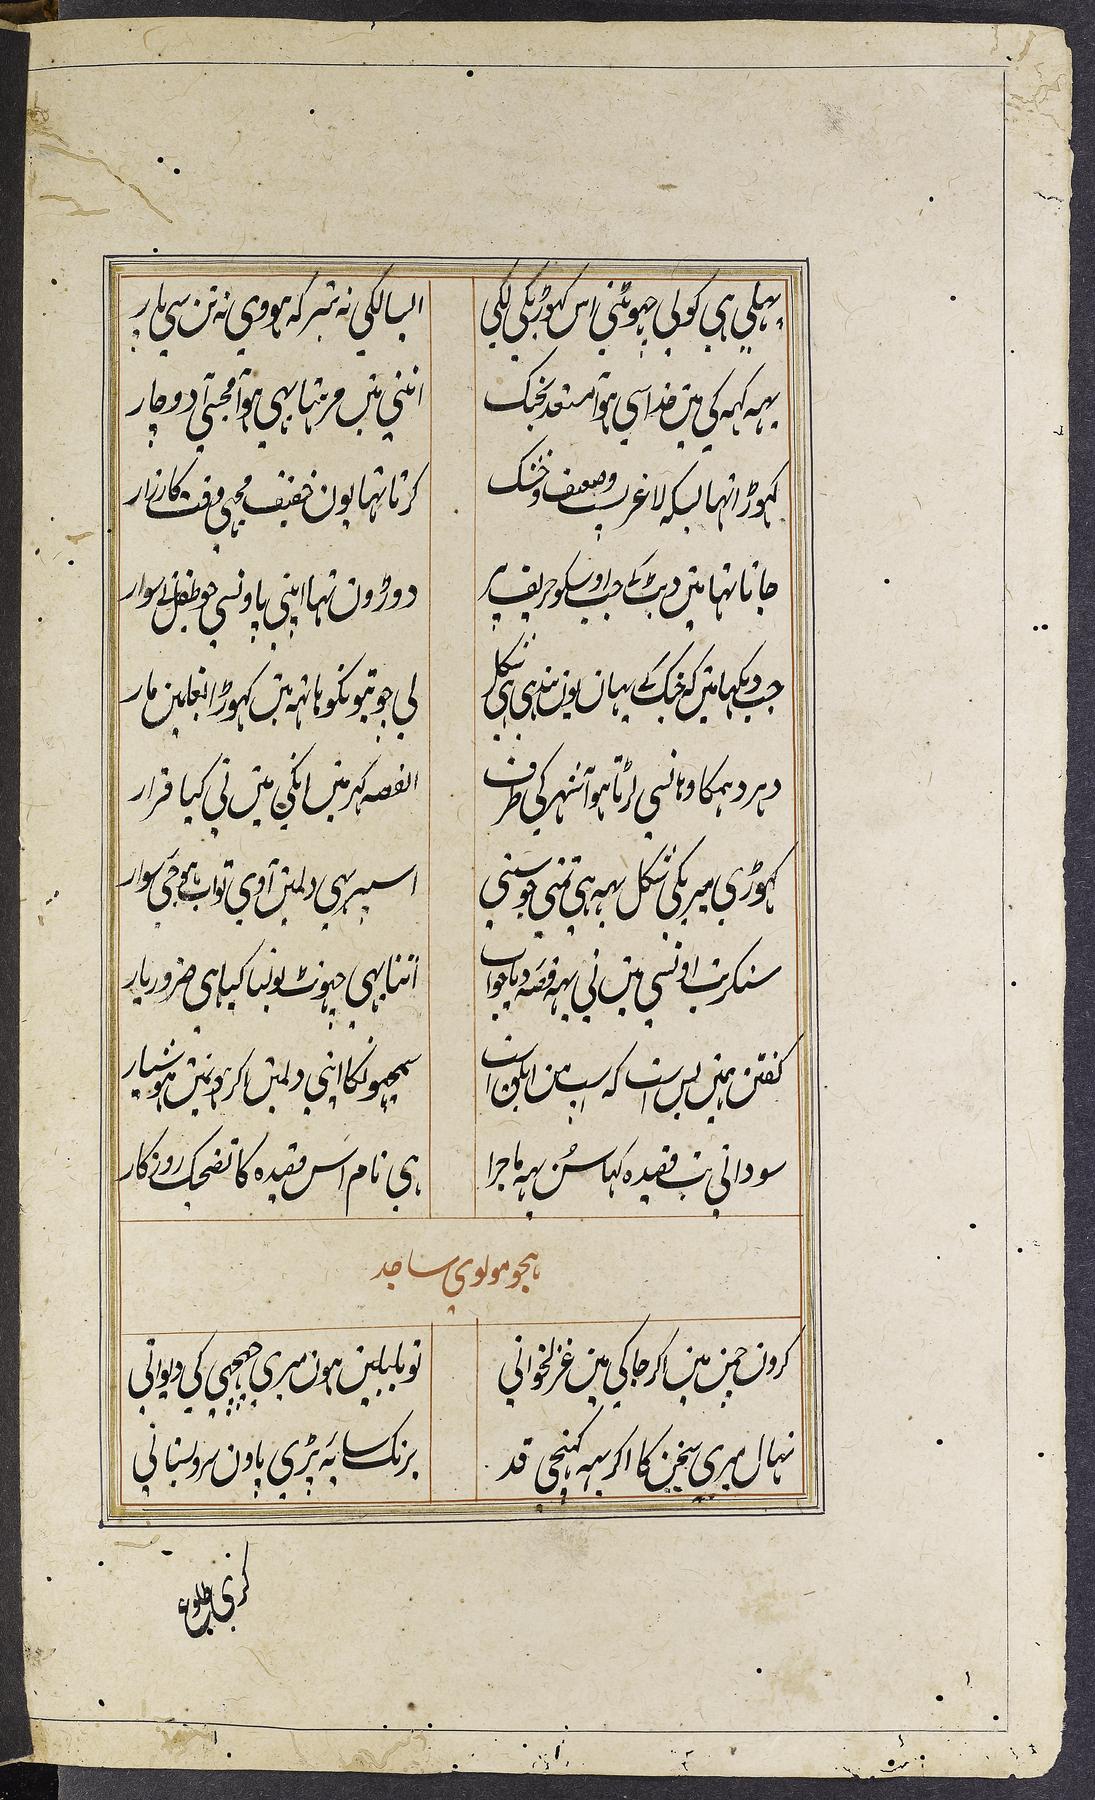 پہلی ہی کولی چہوٹتی اس کہوڑیکی لکی
ایسا لکی نہ تیر کہ ہووی نہ تن سی پار
یہہ کہہ کی میں خدا سی ہوا مستعد بجنک
اتنی میں مرہٹا بہی ہوا مجسی آ دو چار
کہوڑا تہا بسکہ لاغر و پست و ضعیف و خشک
کرتا تہا یون خفیف مجہی وقت کارزار
جاتا تہا میں دپٹ کی جب اوسکو حریف پر
دوڑون تہا اپنی پاونسی جو طفل نی سوار
جب دیکہا میں کہ جنک کی یہان یون بندہی ہی شکل
لی جوتیونکو ہاتہہ میں کہوڑا بغلمین مار
دہر دہمکا وہانسی لڑتا ہوا شہر کی طرف
القصہ کہر میں آنکی میں نی کیا قرار
کہوڑی میریکی شکل یہہ ہی تمنی جو سنی
اسپر بہی دلمیں آوی تو اب ہوجی سوار
سنکر تب اونسی میں نی یہہ قصہ دیا جواب
اتنا بہی جہوٹ بولنا کیا ہی ضرور یار
کفتن ہمیں بس است کہ اسپ من ابلق است
سمجہونکا اپنی دلمیں اکر ہونمیں ہوشیار
سودا نی تب قصیدہ کہا سن یہہ ماجرا
ہی نام اس قصیدہ کا تضحیک روزکار
ہجو مولوی ساجد
کرون چمن مین اکر جاکی مین غزلخوانی
تو بلبلین ہون میری چہچہی کی دیوانی
نہال میری سخن کا اکر یہہ کہنچی قد
برنک سایہ پڑی پاون سرو بستانی
کری طلوع